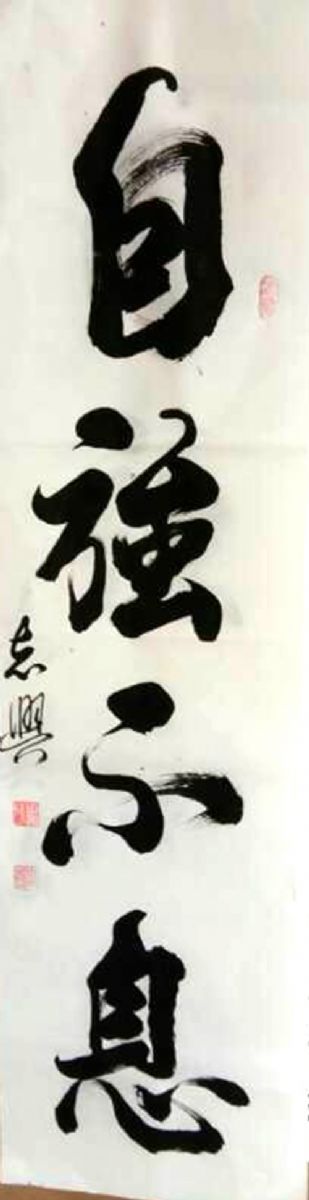 自強不息
志興